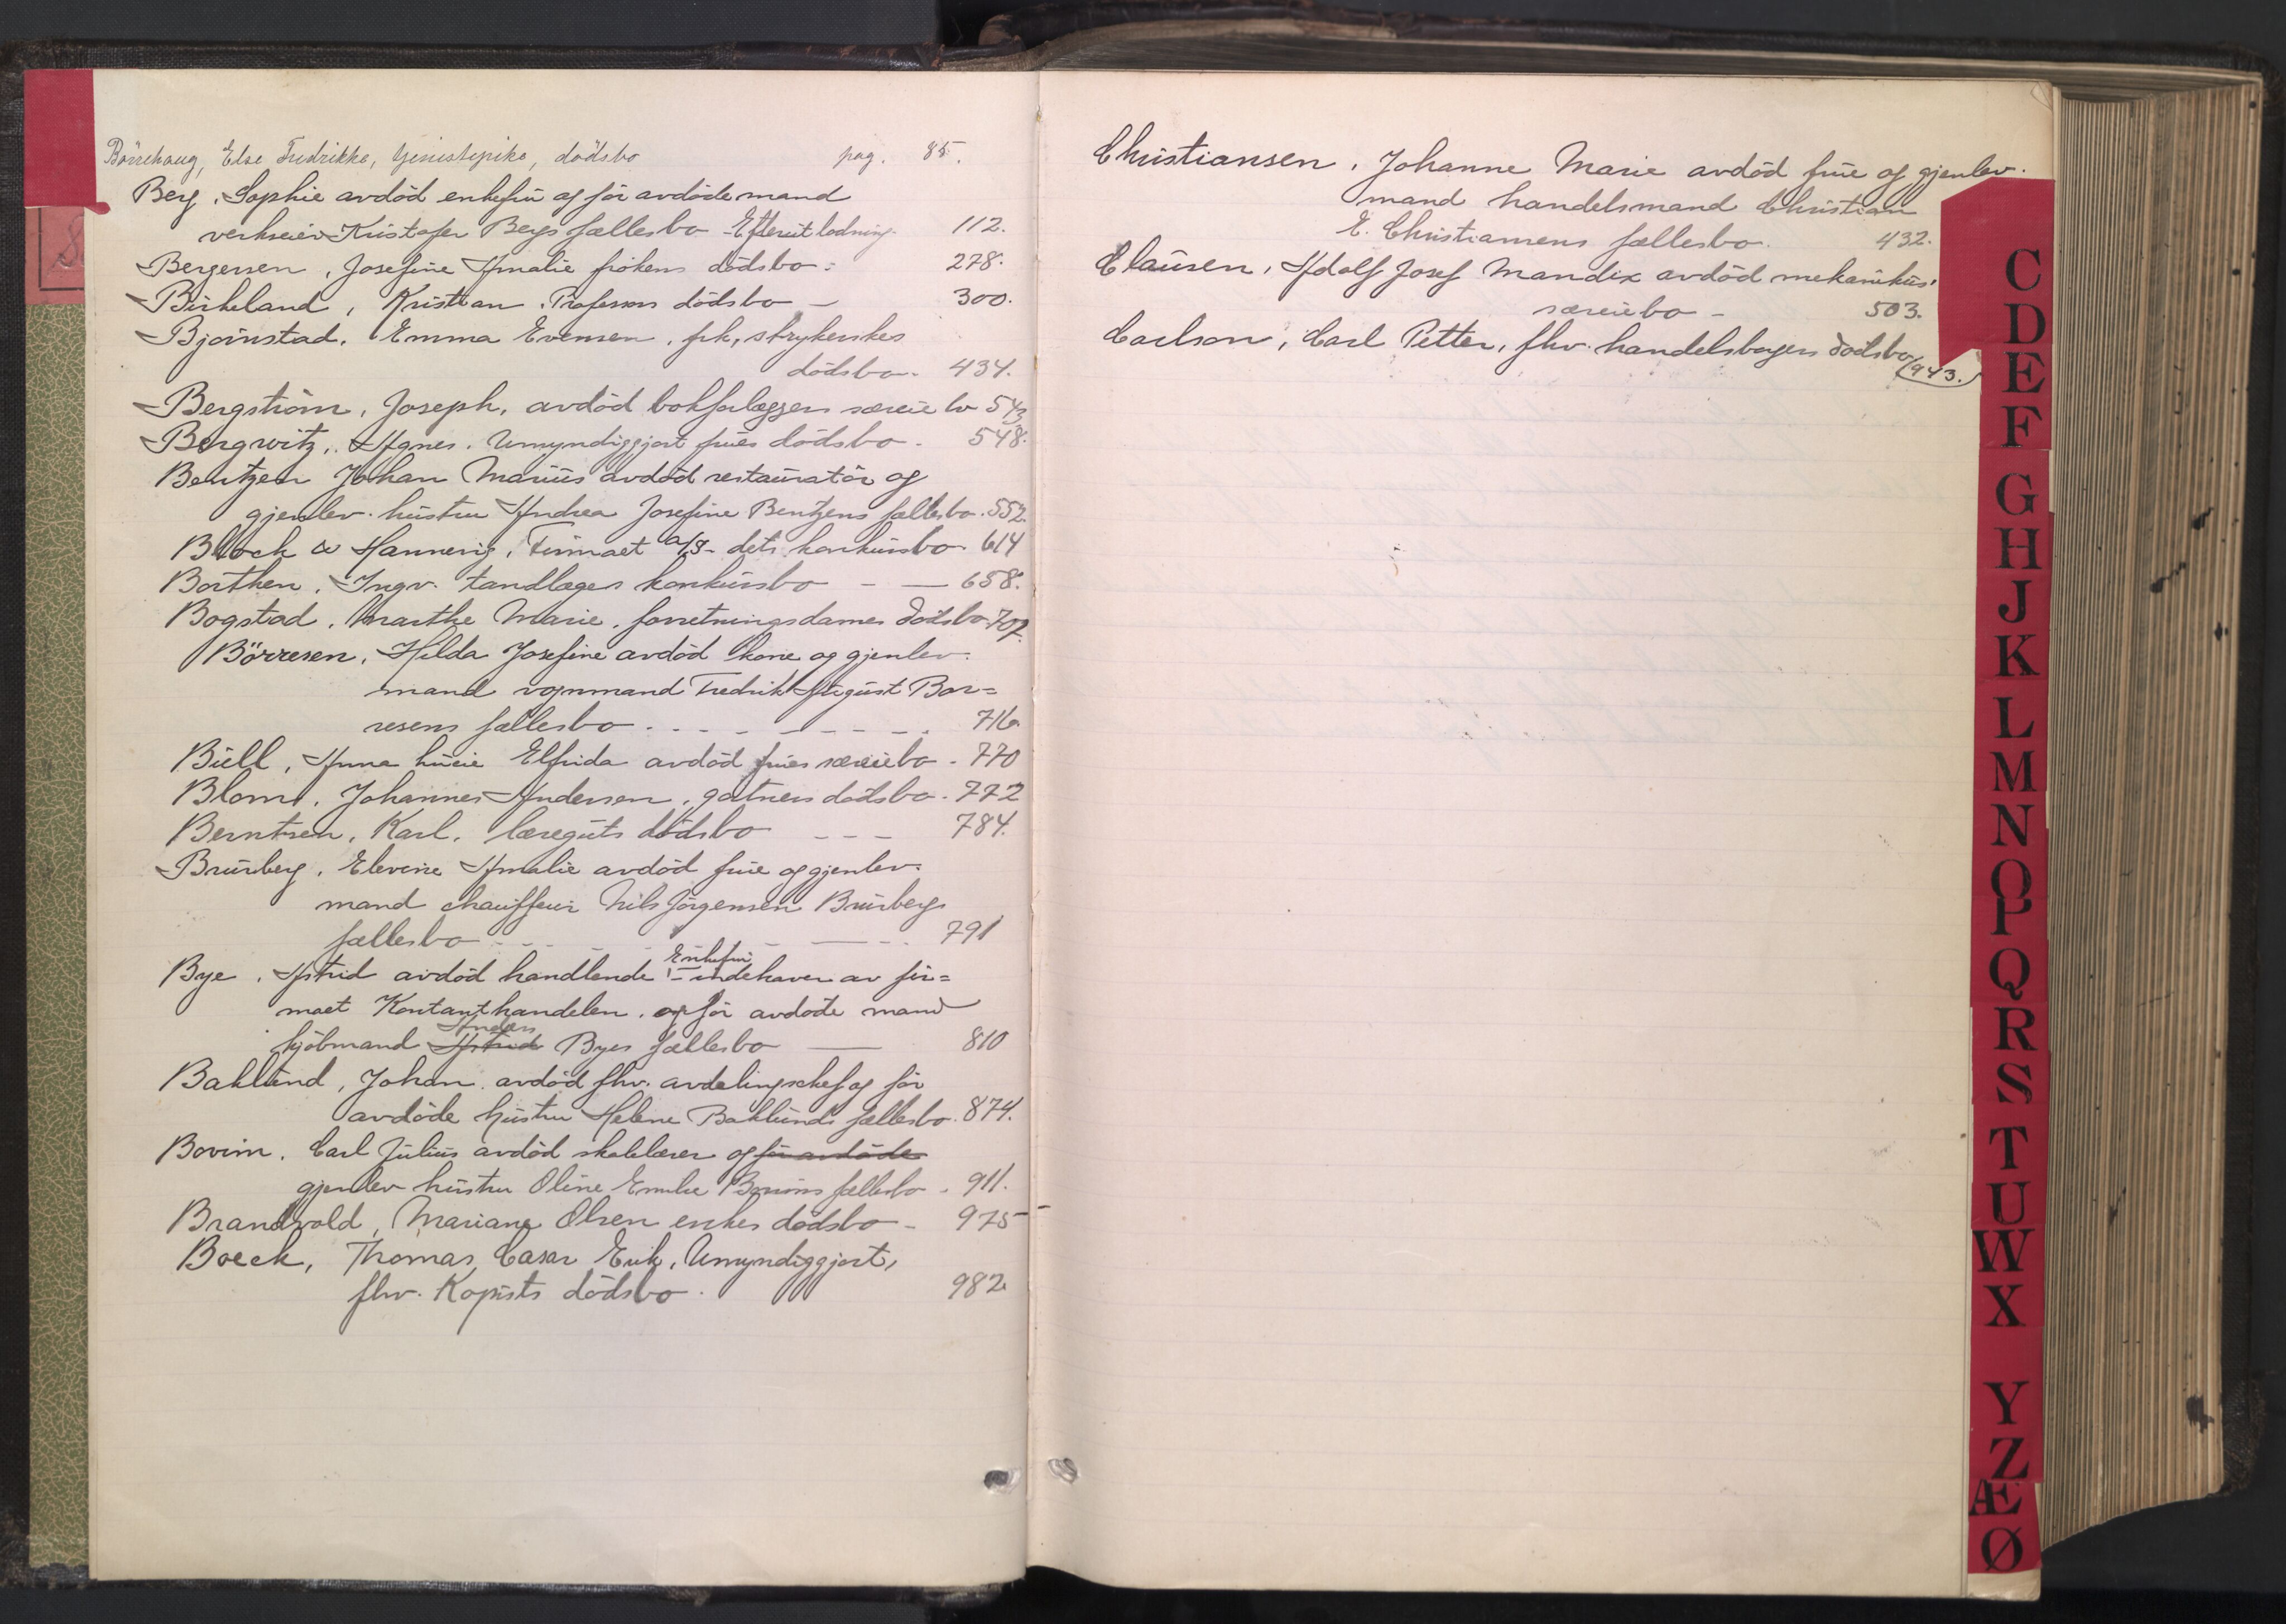 Börrehaug, Else Fredrikke, tjenestepike, dödsbo pag. 85.
Berg, Sophie avdöd enkefru og för avdöde mand
verkseier Kristofer Bergs fællesbo - Efterutlodning. 112.
Bergersen, Josefine Amalie frökens dödsbo - 278.
Birkeland, Kristian. Professors dödsbo - 300.
Bjørnstad, Emma Evensen, frk, strykerskes
dödsbo - 434.
Bergström, Joseph, avdöd bokforlæggers særeiebo 543
Bergwitz, Agnes. Umyndiggjort frues dödsbo - 548.
Bentzen Johan Marius avdöd restauratör og
gjenlev. hustru Andrea Josefine Bentzens fællesbo. 552.
Block & Hannevig, Firmaet A/S - dets konkursbo 614
Borthen, Ingv. tandlæges konkursbo - - 658.
Bogstad, Marthe Marie, forretningsdames dödsbo 707.
Börresen, Hilda Josefine avdöd kone og gjenlev.
mand vognmand Fredrik August Bör=
resens fællesbo - - - - - - - 716.
Büll, Anna Lucie Elfrida avdöd frues særeiebo - 770
Blom, Johannes Andersen, gatners dödsbo - 772
Berntsen, Karl, læreguts dödsbo - - - 784.
Brurberg, Elevine Amalie avdöd frue og gjenlev.
mand chauffeur Nils Jörgensen Brurbergs
fællesbo - - - - - 791
Enkefru
Bye, Astrid avdöd handlende - indehaver av fir=
maet Kontanthandelen, og för avdöde mand
Anders
kjöbmand Astrid Byes fællesbo — 810
Baklund, Johan, avdöd fhv. avdelingschef og för
avdöde hustru Helene Baklunds fællesbo. 874.
Bovim, Carl Julius avdöd skolelærer og för avdöde
gjenlev hustru Oline Emilie Bovims fællesbo - 911.
Brandvold, Mariane Olsen enkes dödsbo - 975 -
Boeck, Thomas Cæsar Erik, Umyndiggjort,
fhv. Kopists dödsbo. 982.
Christiansen, Johanne Marie avdöd frue og gjenlev.
mand handelsmand Christian
E. Christiansens fællesbo. 432.
Clausen, Adolf Josef Mandix avdöd mekanikus'
særeiebo - 503.
Carlson, Carl Petter, fhv. handelsborgers dödsbo
943.
C
D
E
F
G
H
J
K
L
M
N
O
P
Q
R
S
T
U
W
X
Y
Z
Æ
Ø